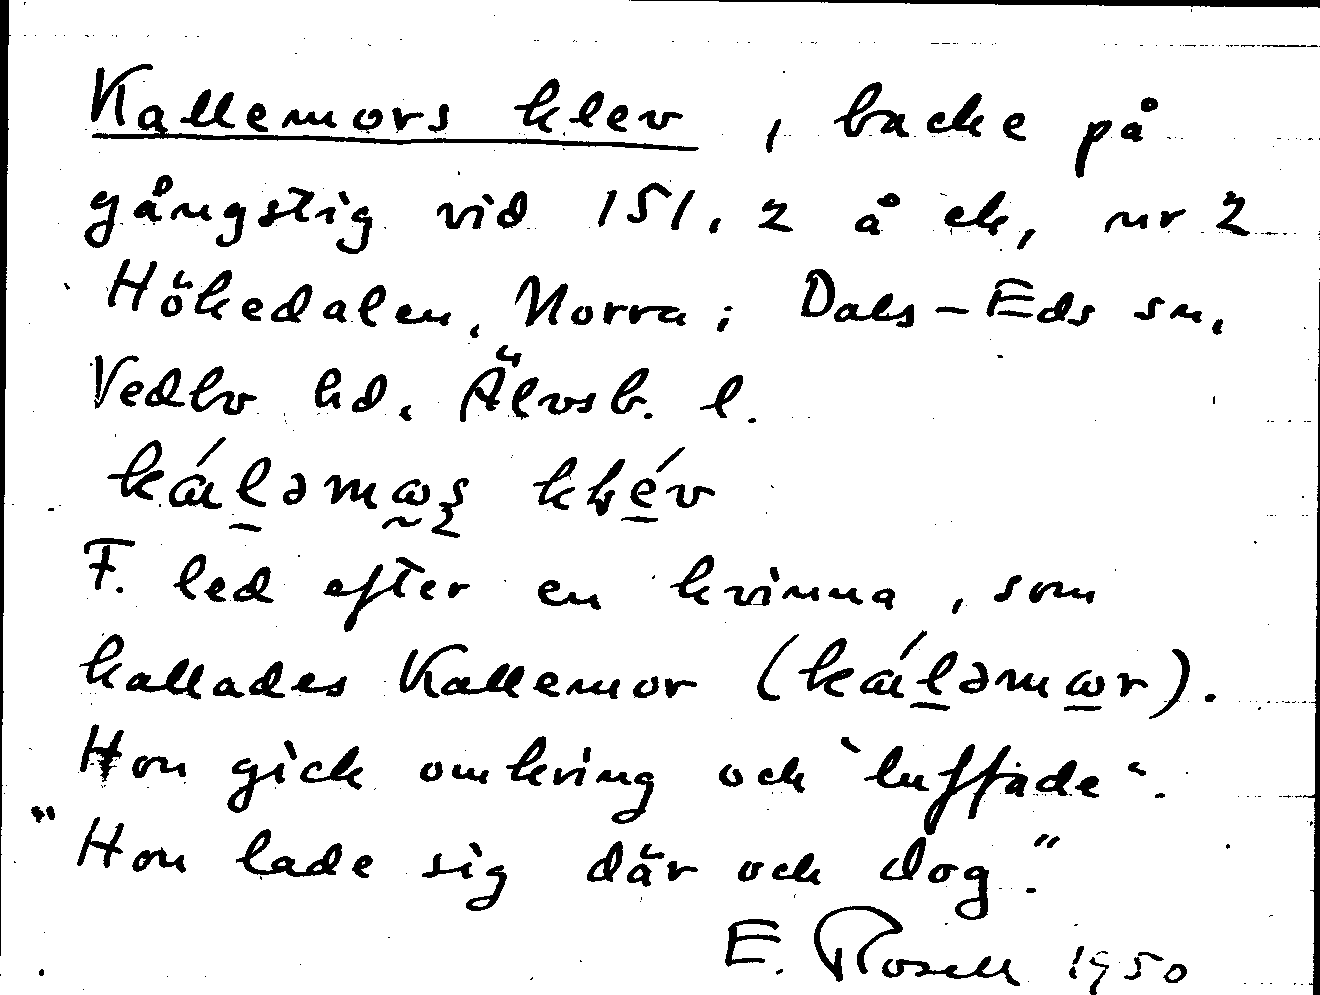 Kallemors klev, backe på
gångstig vid 151.2 å ek, nr 2
Hökedalen, Norra; Dals-Eds sn,
Vedbo hd, Älvsb. l.
káləmɷs klév
F. led efter en kvinna, som
kallades Kallemor (káləmɷr).
Hon gick omkring och "luffade".
"Hon lade sig där och dog."
E. Rosell 1950